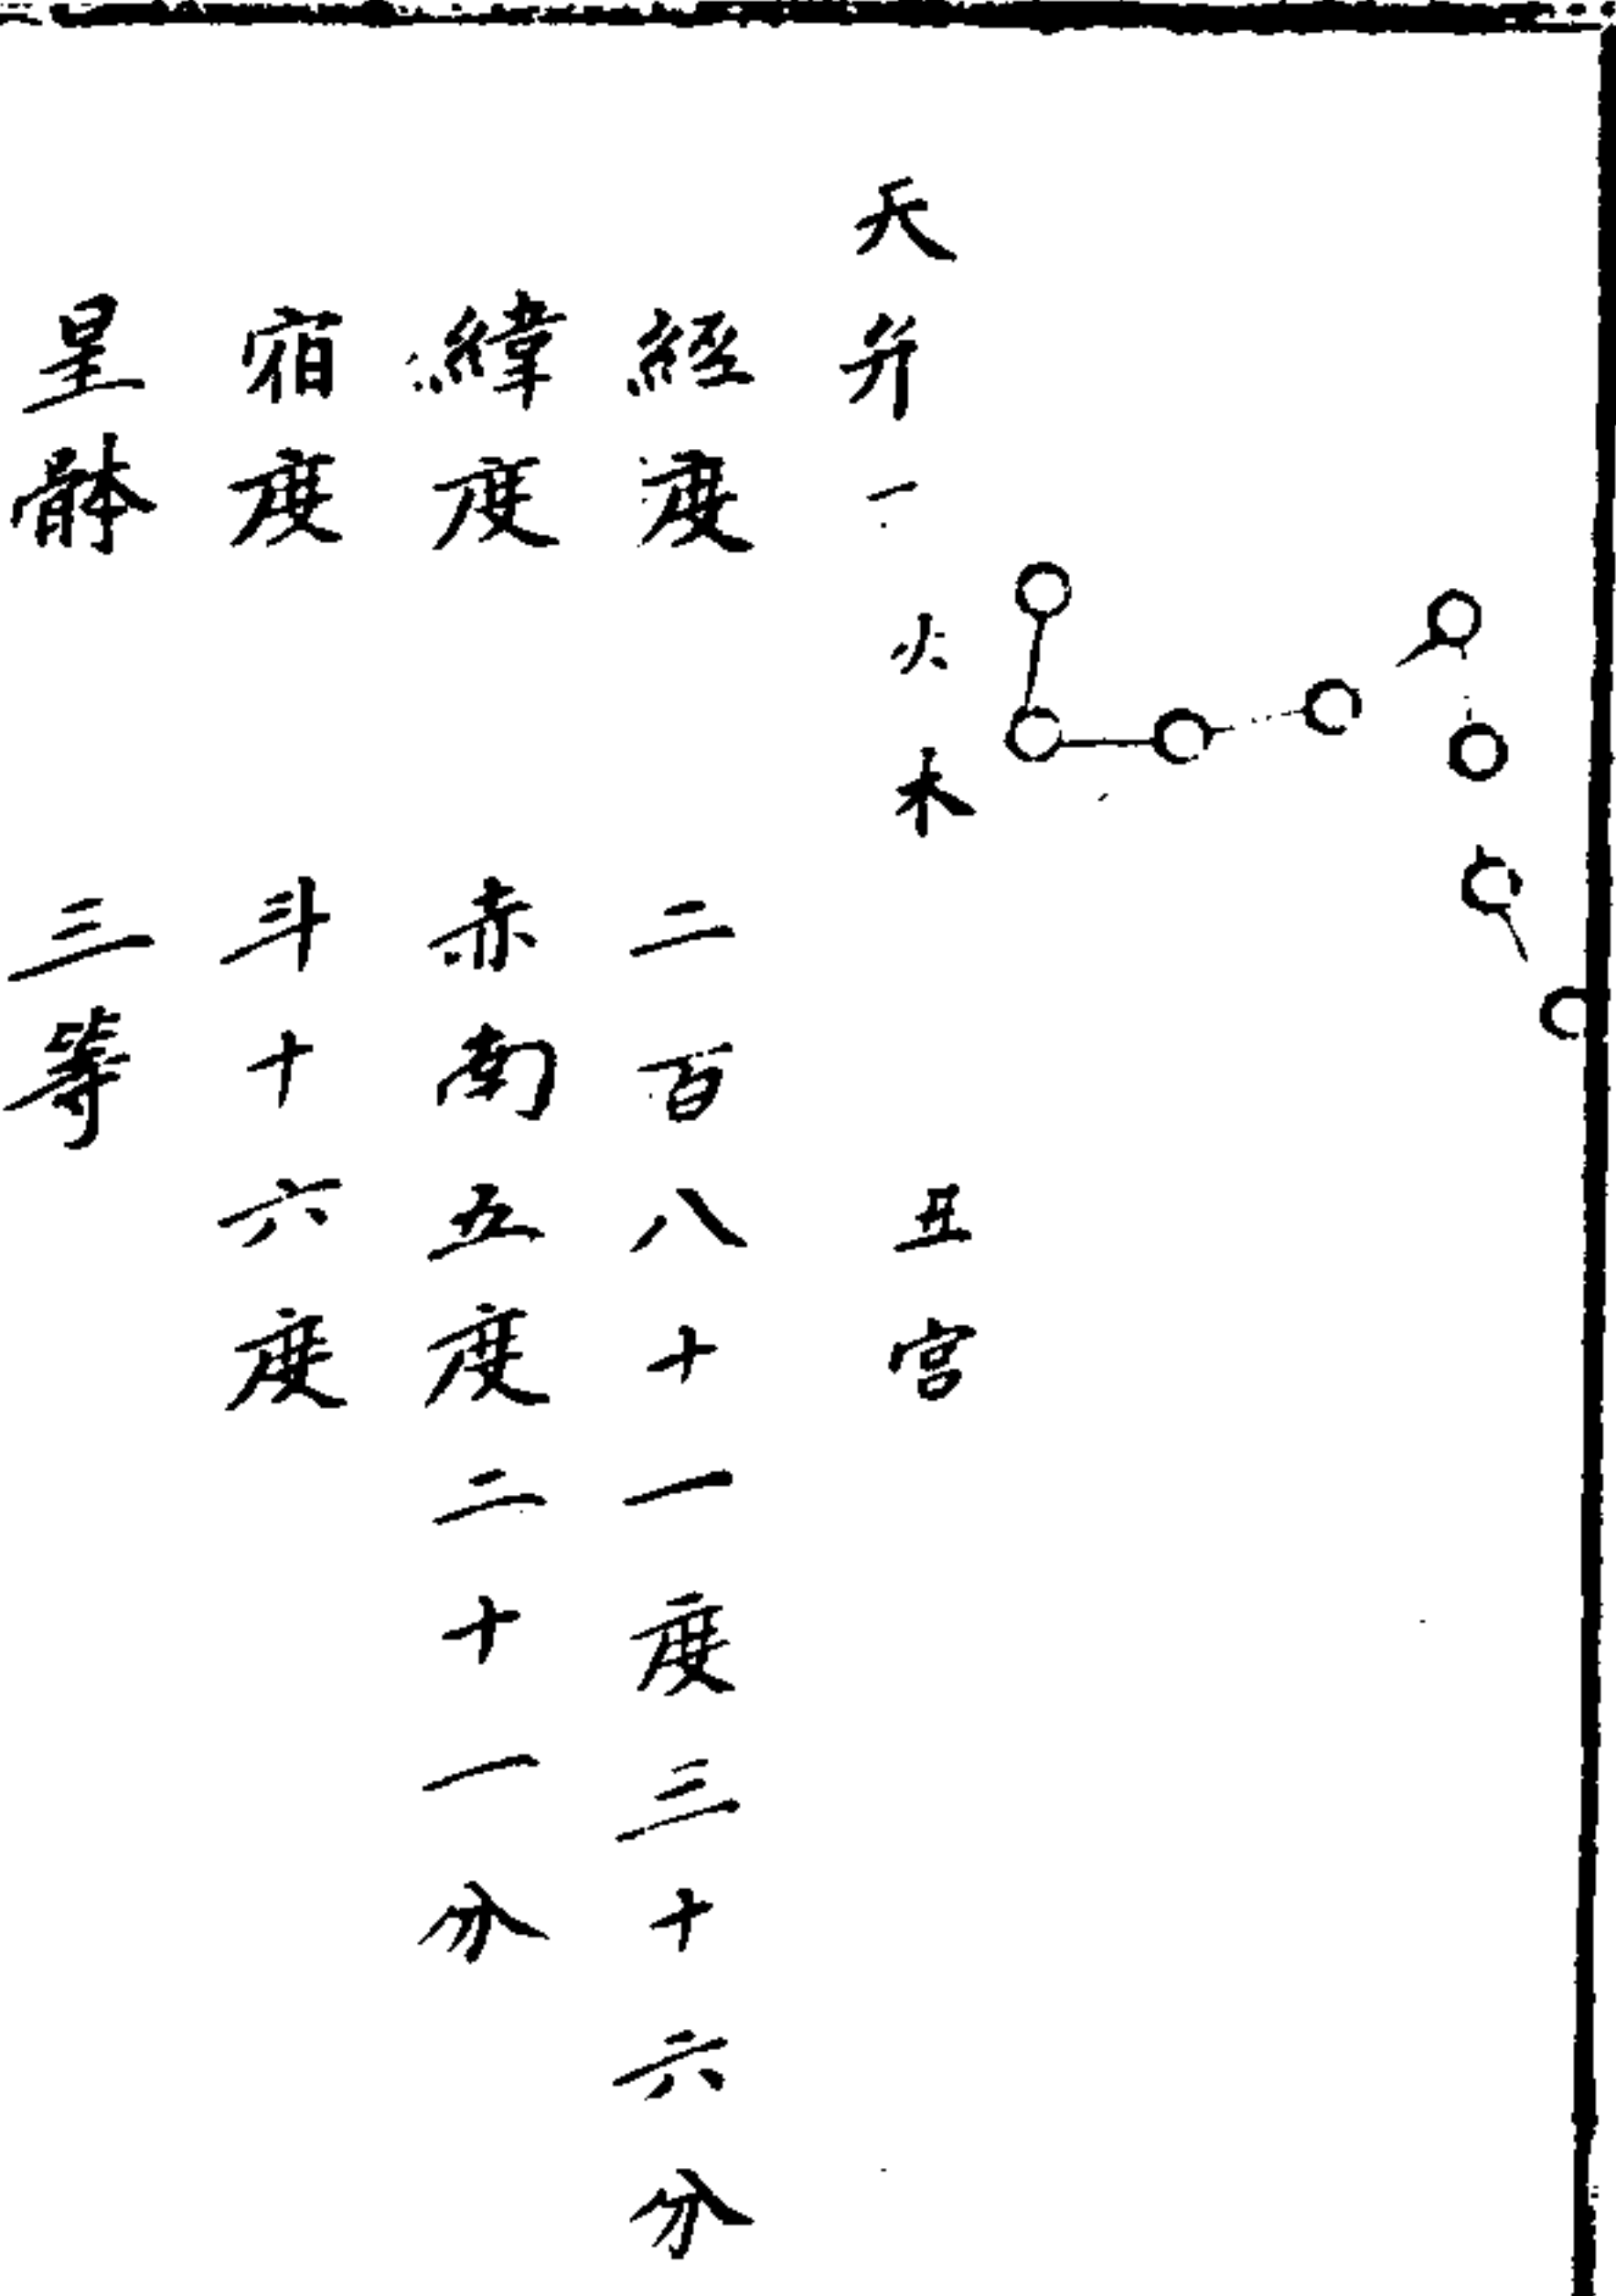 天弁一 火木 丑宮
經度 二百八十一度三十六分
緯度 赤南五度二十一分
宿度 斗十六度
星體 三等